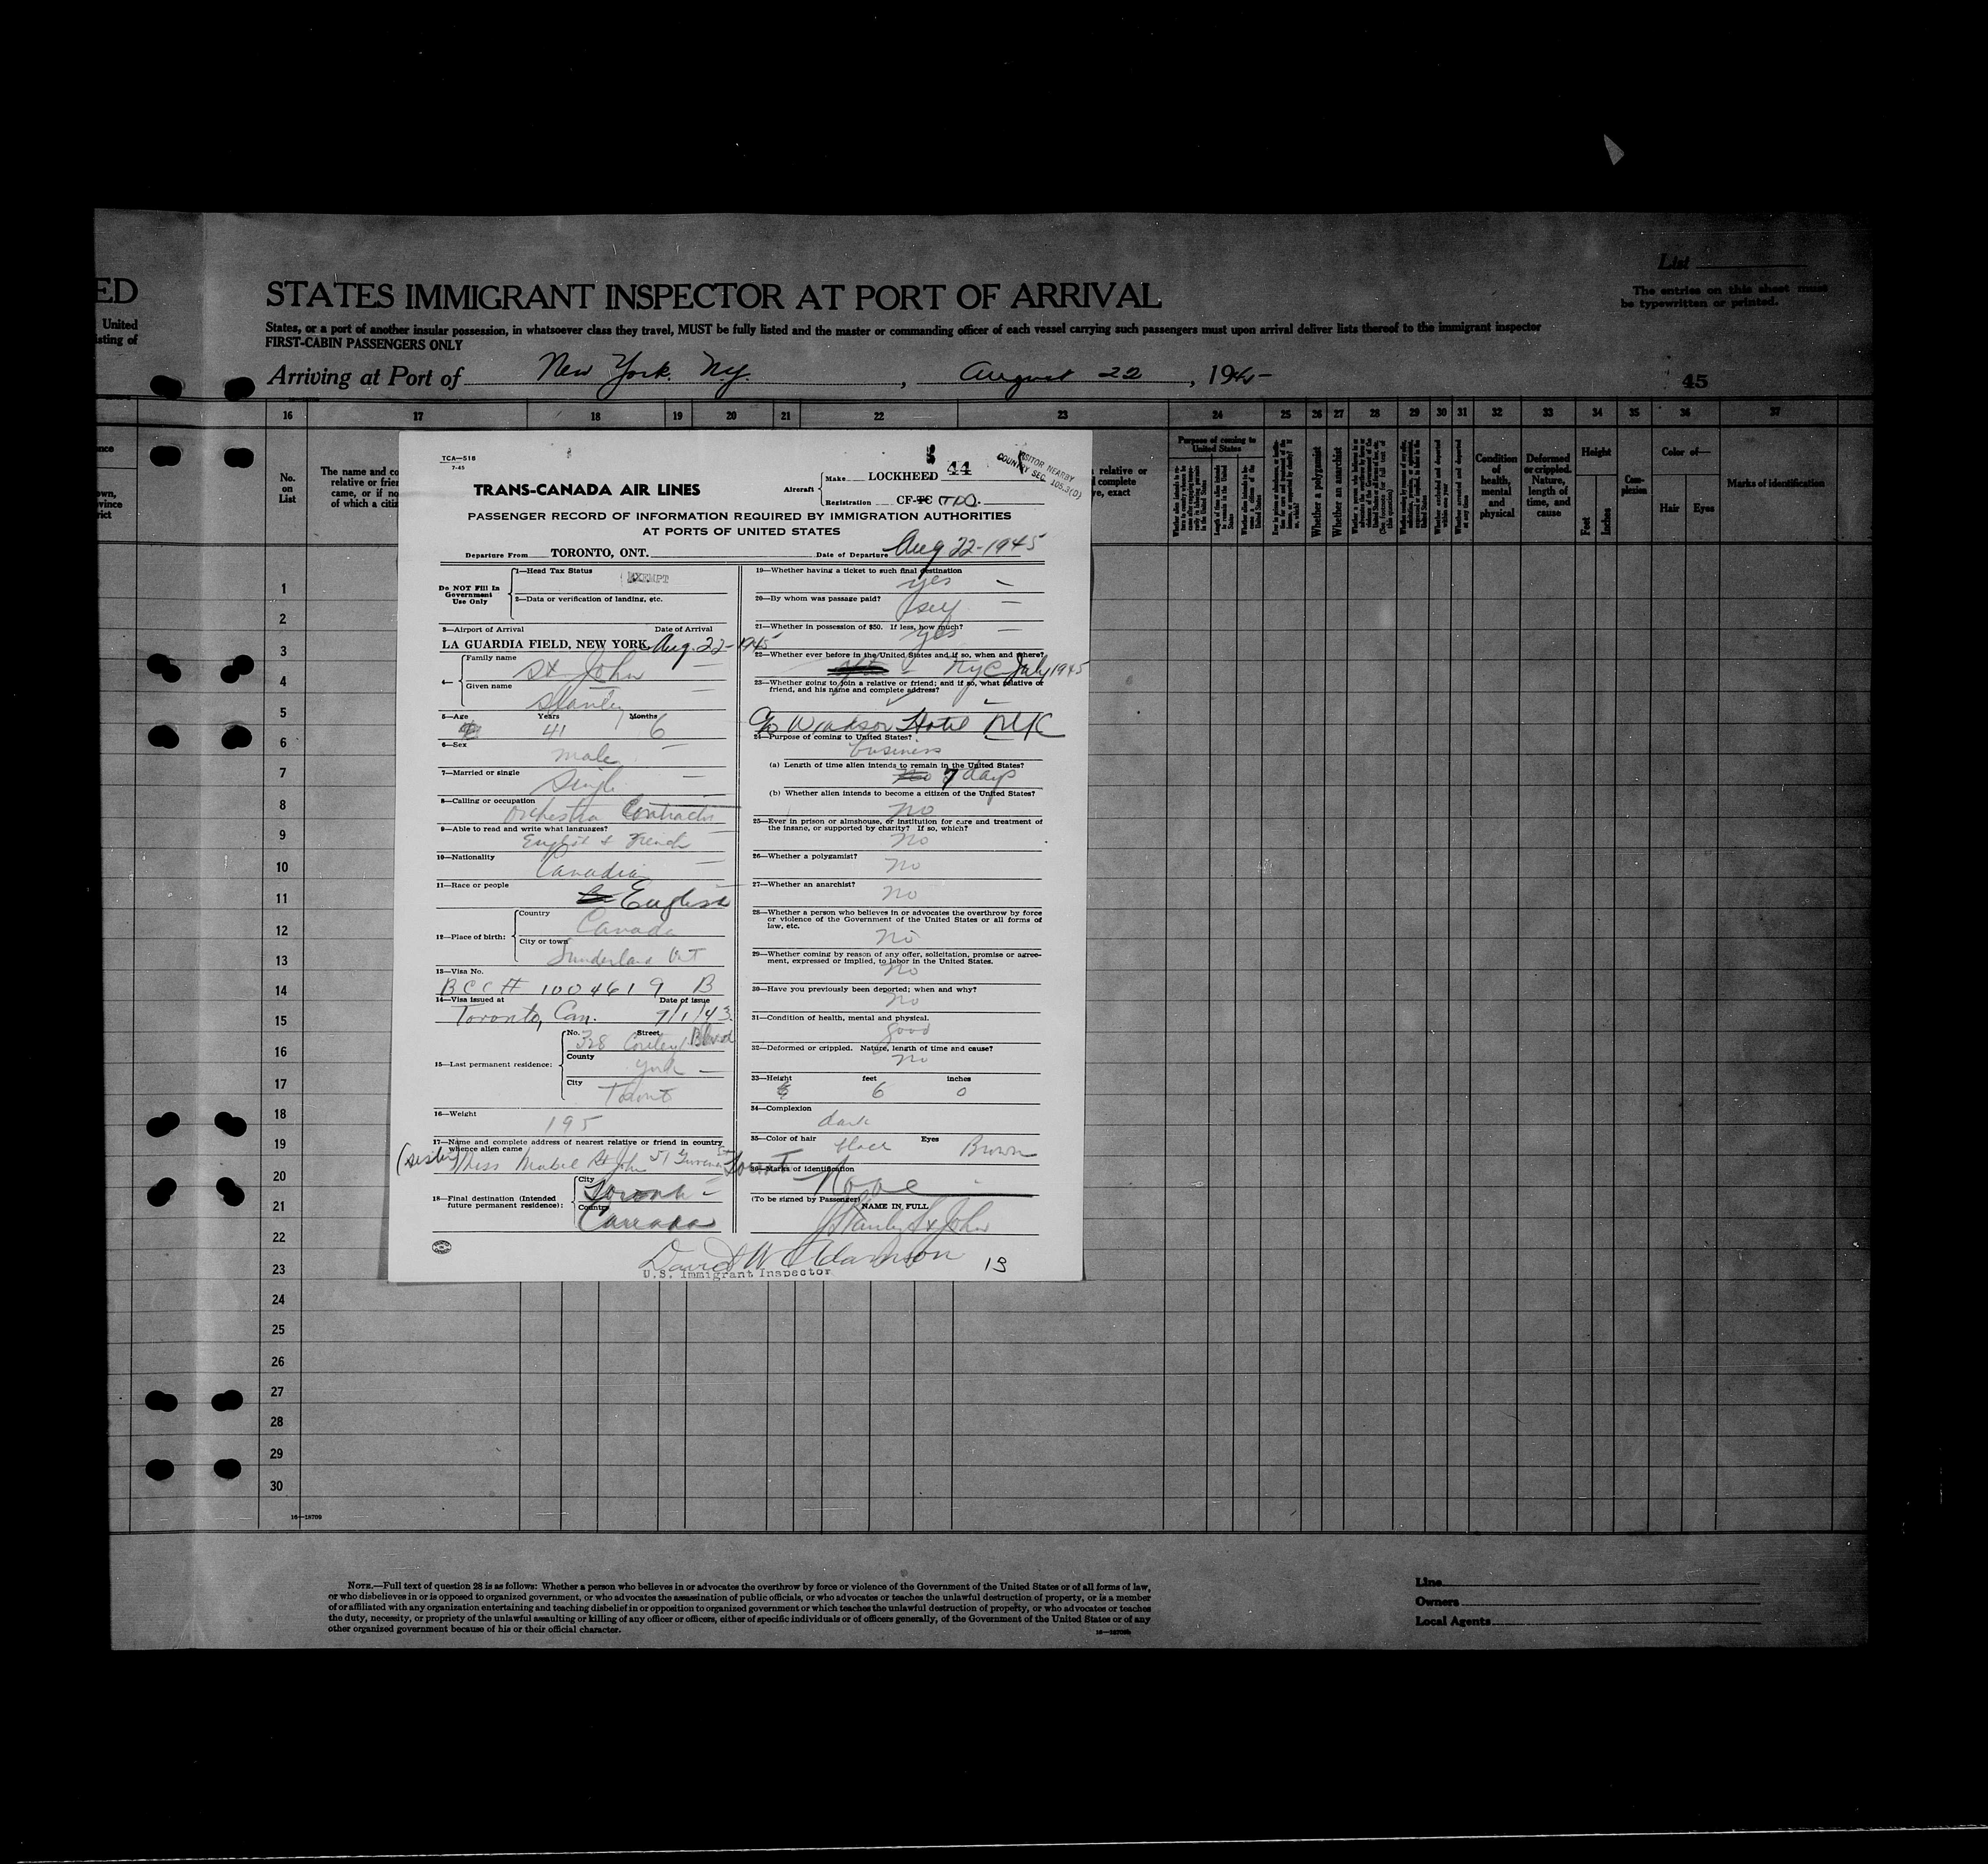 ED
United
isting of
STATES IMMIGRANT INSPECTOR AT PORT OF ARRIVAL
List
The entries on this sheet must
be typewritten or printed.
States, or a port of another insular possession, in whatsoever class they travel, MUST be fully listed and the master or commanding officer of each vessel carrying such passengers must upon arrival deliver lists thereof to the immigrant inspector
FIRST-CABIN PASSENGERS ONLY
Arriving at Port of New York. N.Y. , August 22 , 1945
45
16 17 18 19 20 21 22 23 24 25 26 27 28 29 30 31 32 33 34 35 36 37
No. on List
The name and co
relative or frien
came, or if no
of which a citiz
relative or
d complete
ve, exact
Purpose of coming to United States
Whether a polygamist
Whether an anarchist
Condition of health, mental and physical
Deformed or crippled. Nature, length of time, and cause
Height
Feet
Inches
Com-plexion
Color of—
Hair
Eyes
Marks of identification
TCA—518
7-45
TRANS-CANADA AIR LINES
Aircraft
Make LOCKHEED 44
Registration CF-TC
VISITOR NEARBY
COUNTRY SEC. 105.3(D)
PASSENGER RECORD OF INFORMATION REQUIRED BY IMMIGRATION AUTHORITIES
AT PORTS OF UNITED STATES
Departure From TORONTO, ONT. Date of Departure Aug 22-1945
Do NOT Fill In
Government
Use Only
1—Head Tax Status EXEMPT
2—Data or verification of landing, etc.
3—Airport of Arrival Date of Arrival
LA GUARDIA FIELD, NEW YORK Aug. 22-1945
4— Family name St John
Given name Stanley
5—Age Years 41 Months 6
6—Sex male
7—Married or single Single
8—Calling or occupation Orchestra Contractor
9—Able to read and write what languages?
English & French
10—Nationality Canadian
11—Race or people English
12—Place of birth: Country Canada
City or town Sunderland Ont
13—Visa No.
BCC# 1004619 B
14—Visa issued at Date of issue
Toronto, Can. 9/1/43
15—Last permanent residence: No. 328 Street Blvd
County York
City Toront
16—Weight 195
17—Name and complete address of nearest relative or friend in country
whence alien came
(sister) Miss Mabel St John 51 Toront
18—Final destination (Intended
future permanent residence): City Toronto
Country Canada
19—Whether having a ticket to such final destination
yes
20—By whom was passage paid?
self
21—Whether in possession of $50. If less, how much?
yes
22—Whether ever before in the United States and if so, when and where?
NYC July 1945
23—Whether going to join a relative or friend; and if so, what relative or
friend, and his name and complete address?
c/o Windsor Hotel NYC
24—Purpose of coming to United States?
business
(a) Length of time alien intends to remain in the United States?
7 days
(b) Whether alien intends to become a citizen of the United States?
no
25—Ever in prison or almshouse, or institution for care and treatment of
the insane, or supported by charity? If so, which?
no
26—Whether a polygamist?
no
27—Whether an anarchist?
no
28—Whether a person who believes in or advocates the overthrow by force
or violence of the Government of the United States or all forms of
law, etc.
no
29—Whether coming by reason of any offer, solicitation, promise or agree-
ment, expressed or implied, to labor in the United States.
no
30—Have you previously been deported; when and why?
no
31—Condition of health, mental and physical.
good
32—Deformed or crippled. Nature, length of time and cause?
no
33—Height feet inches
6 0
34—Complexion
dark
35—Color of hair black Eyes Brown
36—Marks of identification
None
(To be signed by Passenger) NAME IN FULL
Stanley St John
David W. Adamson 13
U.S. Immigrant Inspector
1
2
3
4
5
6
7
8
9
10
11
12
13
14
15
16
17
18
19
20
21
22
23
24
25
26
27
28
29
30
16—18709
NOTE.—Full text of question 28 is as follows: Whether a person who believes in or advocates the overthrow by force or violence of the Government of the United States or of all forms of law,
or who disbelieves in or is opposed to organized government, or who advocates the assassination of public officials, or who advocates or teaches the unlawful destruction of property, or is a member
of or affiliated with any organization entertaining and teaching disbelief in or opposition to organized government or which teaches the unlawful destruction of property, or who advocates or teaches
the duty, necessity, or propriety of the unlawful assaulting or killing of any officer or officers, either of specific individuals or of officers generally, of the Government of the United States or of any
other organized government because of his or their official character.
Line
Owners
Local Agents